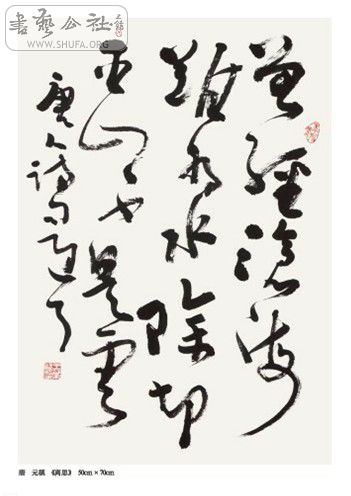 書藝公社
WWW.SHUFA.ORG
曾經滄海
難為水除却
巫山不是雲
唐人詩句
唐 元稹 《离思》 50cm×70cm